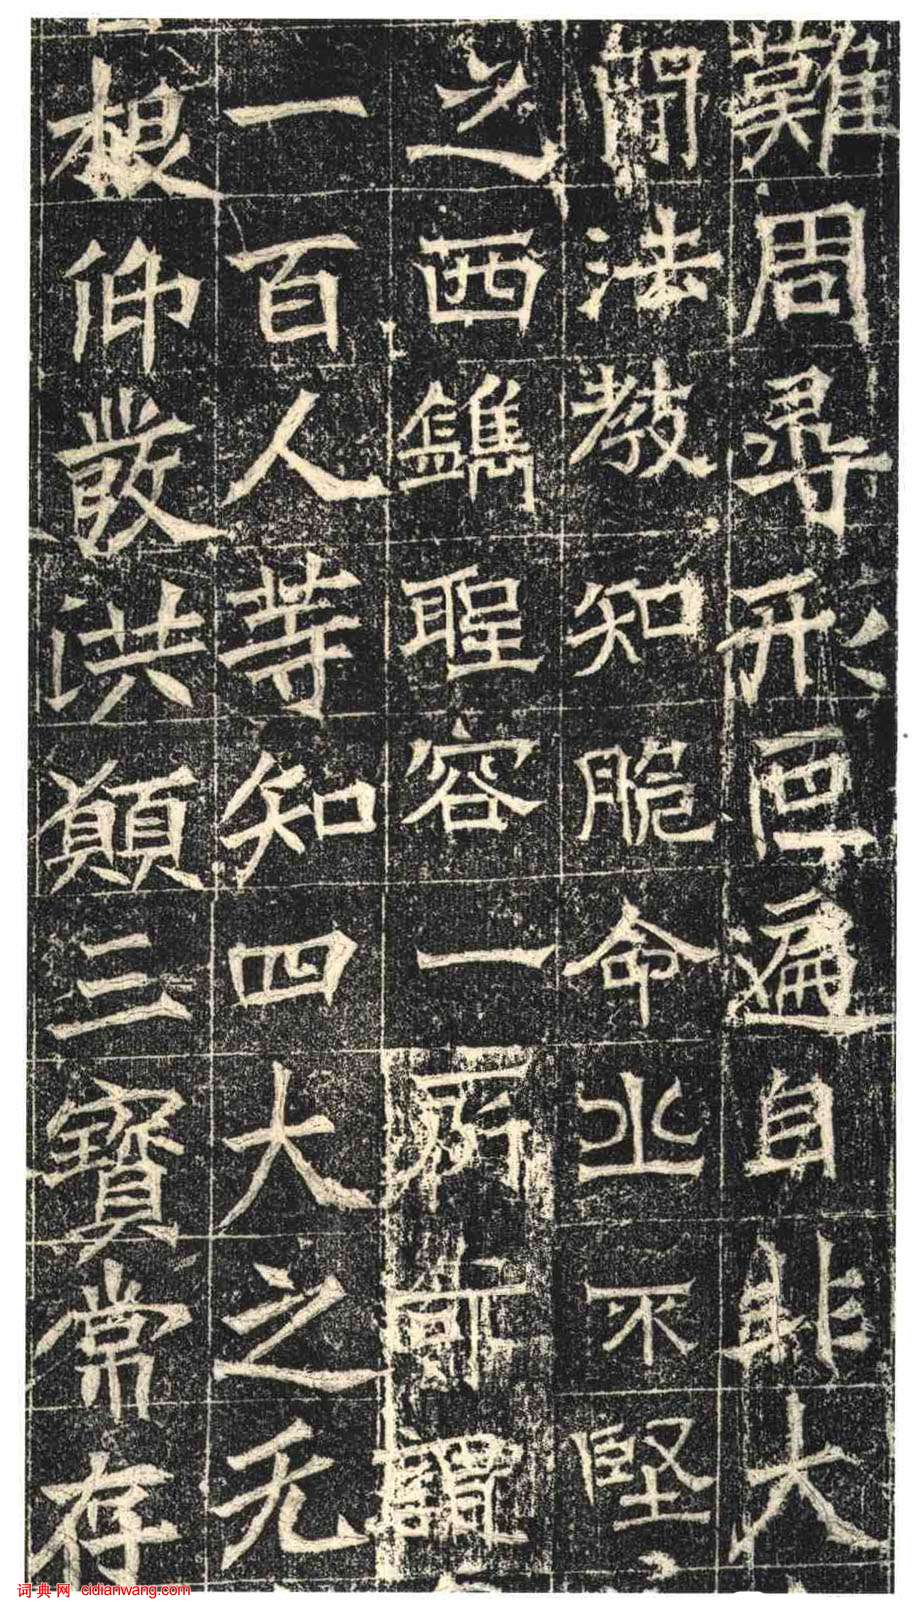 難周尋形色遍自非大
聞法教知脆命㐀不堅
之西鐫聖容一所可謂
一百人等知四大之无
根仰發洪願三寶常存
词典网 cidianwang.com